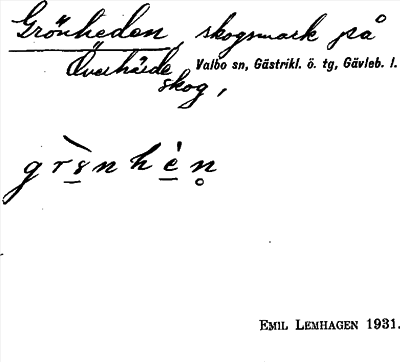 Grönheden, skogsmark på
Överhärde Valbo sn, Gästrikl. ö. tg, Gävleb. l.
skog,
EMIL LEMHAGEN 1931.